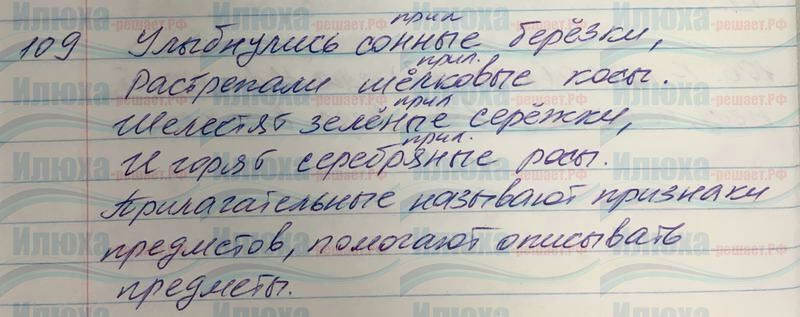 прил
109 Улыбнулись сонные берёзки,
прил.
Растрепали шёлковые косы.
прил
Шелестят зелёные серёжки,
прил.
И горят серебряные росы.
Прилагательные называют признаки
предметов, помогают описывать
предметы.
Илюха-решает.РФ